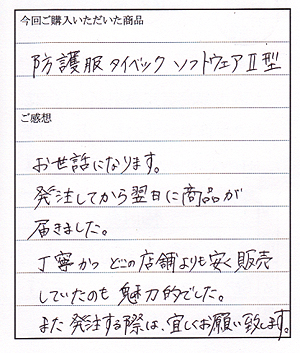 今回ご購入いただいた商品
防護服 タイベック ソフトウェアⅡ型
ご感想
お世話になります。
発注してから翌日に商品が
届きました。
丁寧かつ どこの店舗よりも安く販売
していたのも 魅力的でした。
また 発注する際は、宜しくお願い致します。